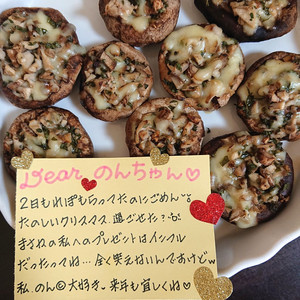 Dear のんちゃん♡
2日もれぽもらってたのにごめん〰
たのしいクリスマス過ごせた?
まるねの私へのプレゼントはインフル
だったってね…全く笑えないんですけどw
私、のん😊大好き〜来年も宜しくね♡